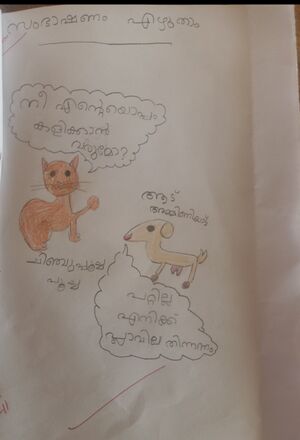 സംഭാഷണം എഴുതാം
നീ എന്റെയൊപ്പം
കളിക്കാൻ
വരുമോ?
ആട്
അമ്മിണിയാട്
ചിഞ്ചുപൂച്ച
പൂച്ച
പറ്റില്ല
എനിക്ക്
പ്ലാവില തിന്നണം